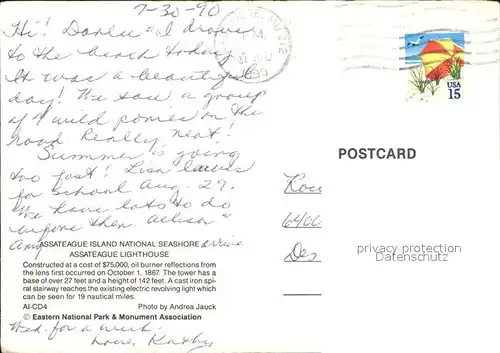 7-30-90
Hi! Darin & I drove
to the beach today
It was a beautiful
day! We saw a group
of 9 wild ponies on the
road Really neat!
Summer is going
too fast! Lisa leaves
for school Aug. 29.
We have lots to do
before then. Allison &
Amy arrive
ASSATEAGUE ISLAND NATIONAL SEASHORE
ASSATEAGUE LIGHTHOUSE
Constructed at a cost of $75,000, oil burner reflections from
the lens first occurred on October 1, 1867. The tower has a
base of over 27 feet and a height of 142 feet. A cast iron spi-
ral stairway reaches the existing electric revolving light which
can be seen for 19 nautical miles.
AI-CD4 Photo by Andrea Jauck
© Eastern National Park & Monument Association
Wed. for a week.
Love, Kathy
USA
15
POSTCARD
6400
Des
privacy protection
Datenschutz